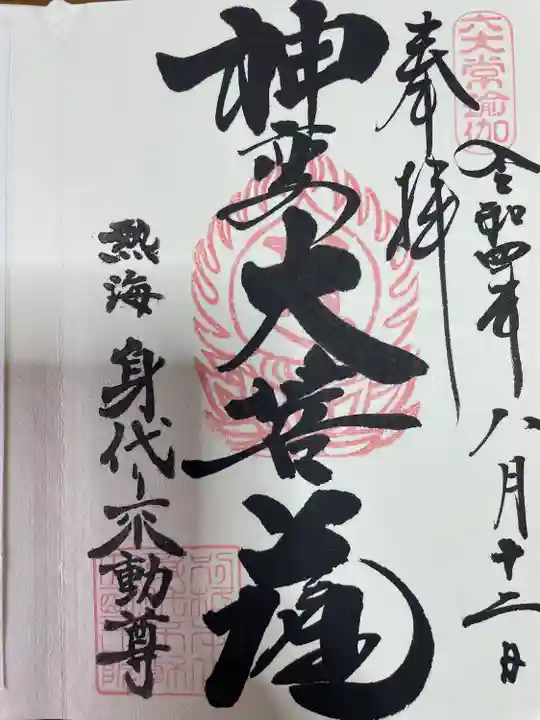 六大常瑜伽
令和四年八月十二日
奉拝
神変大菩薩
熱海
身代り不動尊